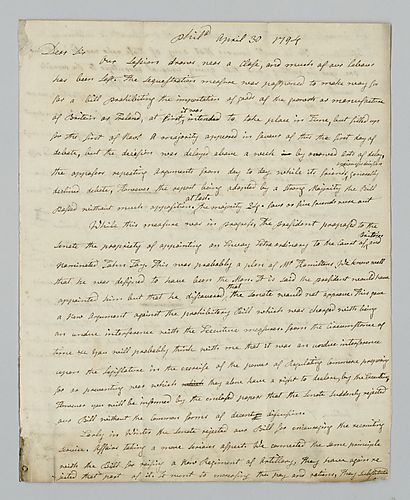 Philad<sup>a</sup> April 30 1794
Dear Sir
Our Session draws near a Close, and much of our labour
has been lost. The sequestration measure was postponed to make way for
for a Bill prohibiting the importation of part of the growth or manufacture
of Britain or Ireland, at first, it was intended to take place in June, but filled up
for the first of Novr. A majority appeared in favour of this the first day of
debate, but the decision was delayed above a week by various acts of delay,
the opposers repeating arguments from day to day while its friends generally
declined debate, However the report being adopted by a strong Majority the Bill
Passed without much opposition, at last the majority 24. Four or five friends were out
While this measure was in progress the president proposed to the
Senate the propriety of appointing an Envoy Extraordinary to the Court of Britain, and
Nominated John Jay. This was probably a plan of Mr Hamiltons. We know well
that he was designed to have been the Man. It is said the president would have
appointed him but that he discovered that the Senate would not approve. This gave
a New argument against the prohibitory Bill which was charged with being
an undue interference with the Executive measures from the Circumstance of
time. You will probably think with me that it was an undue interference
upon the Legislature in the exercise of the power of Regulating Commerce
so as preventing war which they alone have a right to declare, by the Executive,
However you will be informed by the enclosed papers that the Senate suddenly rejected
our Bill without the common forms of decent discussion.
Early in Winter the Senate rejected our Bill for encouraging the recruiting
Service. Affairs taking a more serious aspect We connected the same principle
with the Bill for raising a New Regiment of Artillery, they have again re
jected that part of it. It went to increasing the pay and rations, they